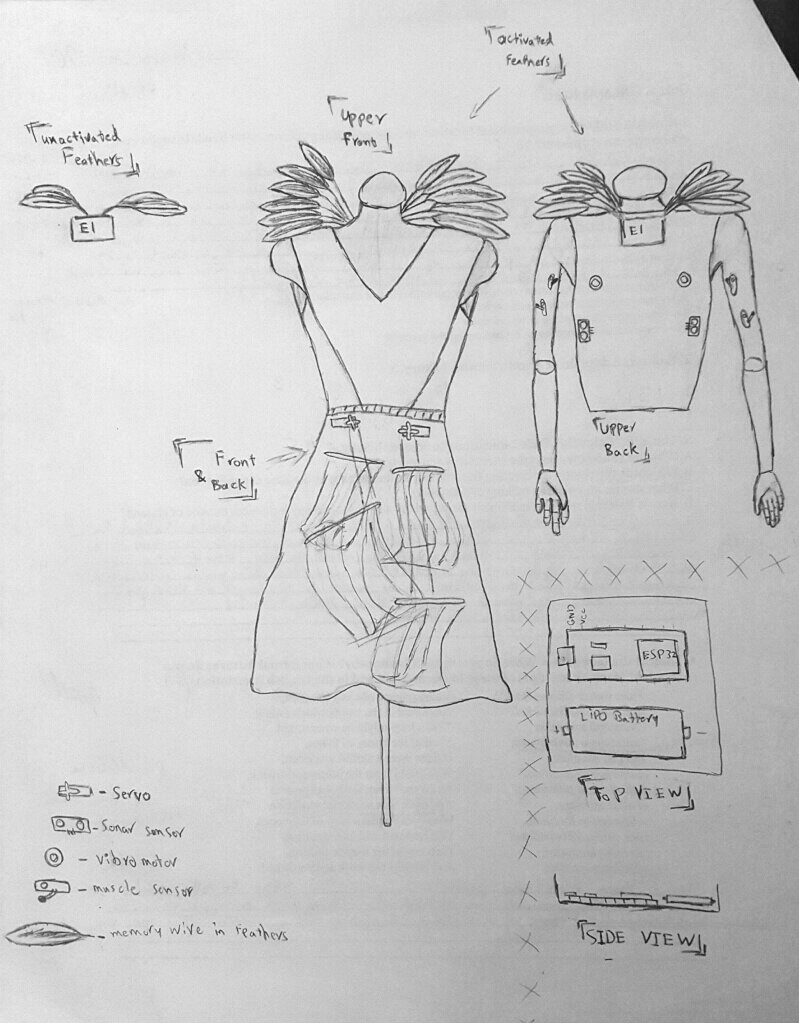 activated
Feathers
unactivated
Feathers
Upper
Front
E1
E1
Front
& Back
Upper
Back
GND
VCC
ESP32
LiPO Battery
+ -
TOP VIEW
SIDE VIEW
- Servo
- Sonar sensor
- vibro motor
- muscle sensor
- memory wire in feathers